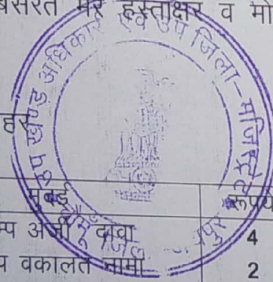 बसरत मेरे हस्ताक्षर व मो
उप खण्ड अधिकारी एवं उप जिला-मजिस्ट्रेट
मुद्दई
रूपय
म्प अर्जी दावा
4
प वकालत नामा
2